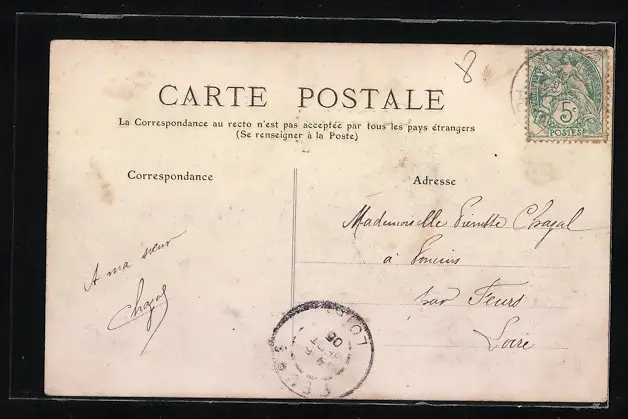 8
CARTE POSTALE
La Correspondance au recto n'est pas acceptée par tous les pays étrangers
(Se renseigner à la Poste)
5c
POSTES
Correspondance
Adresse
Mademoiselle Pierrette Chazal
à Poncins
par Feurs
Loire
A ma sœur
Chazal
LOIRE
05